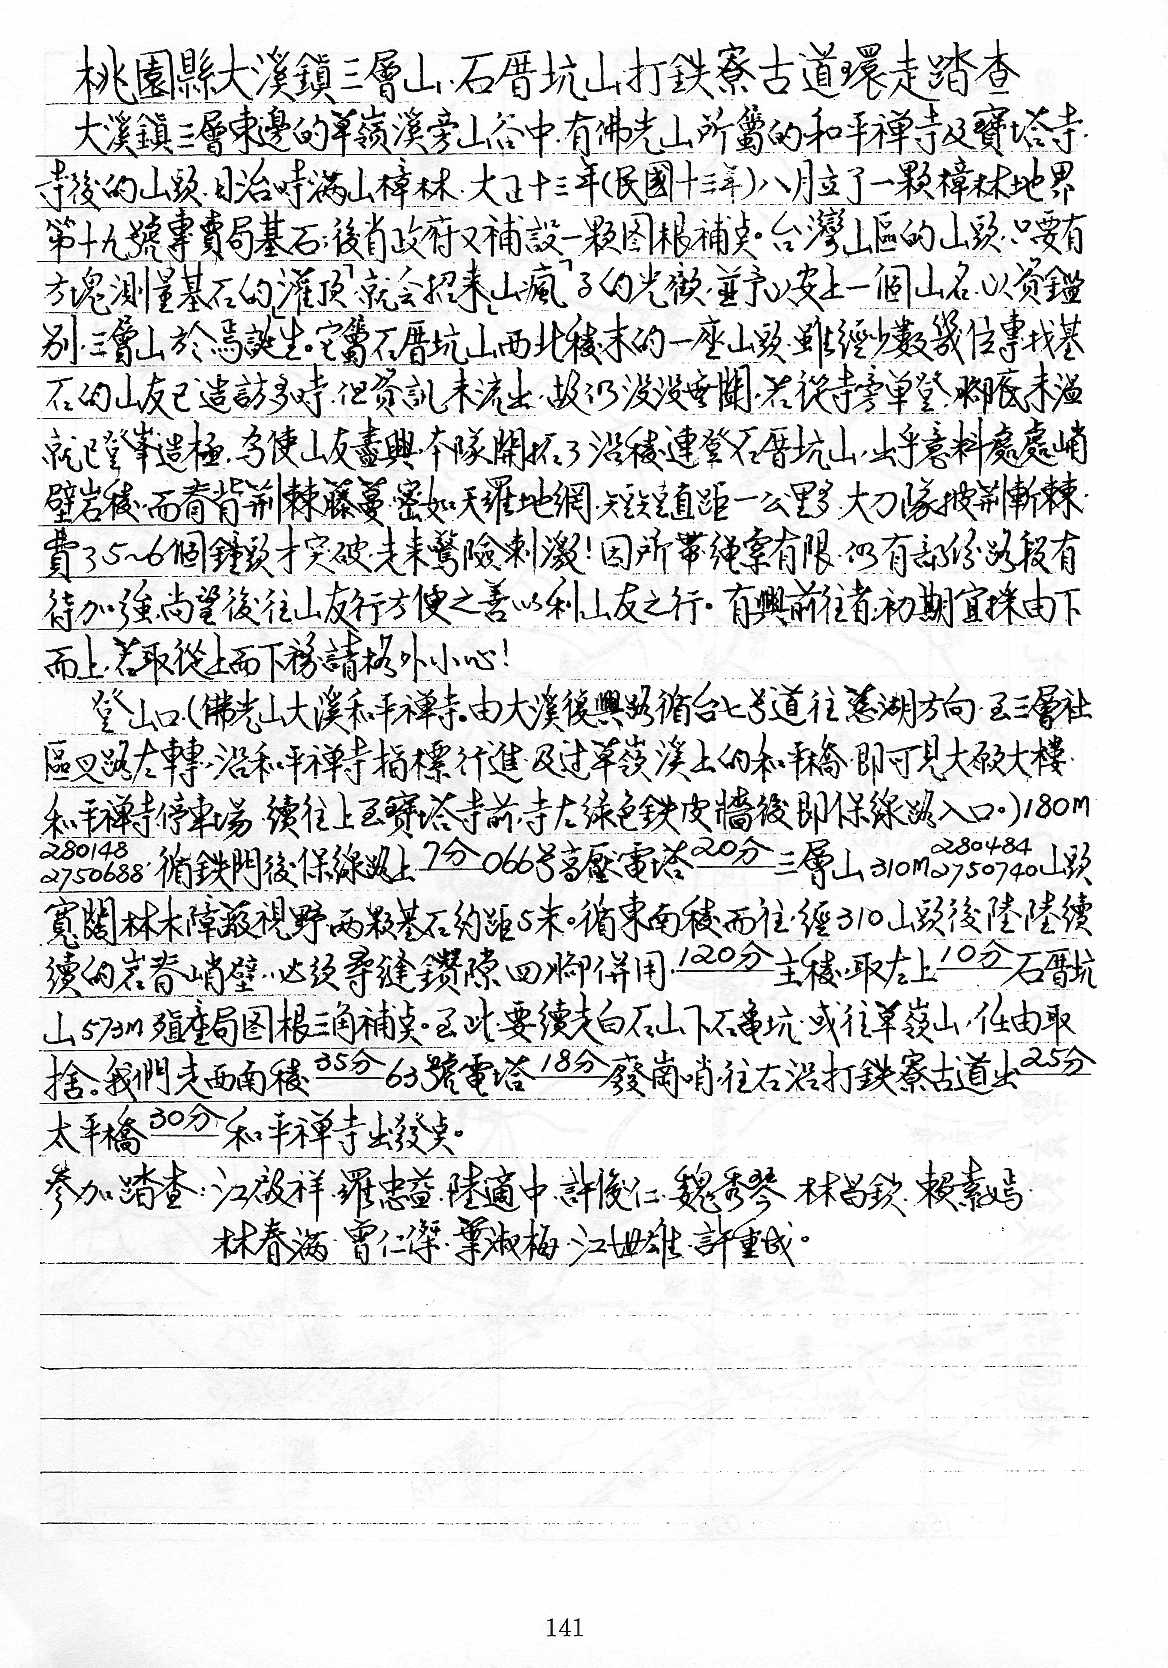 桃園縣大溪鎮三層山.石厝坑山.打鉄寮古道環走踏查
大溪鎮三層東邊的草嶺溪旁山谷中.有佛光山所屬的和平禅寺及寶塔寺.
寺後的山頭.日治時滿山樟林.大正十三年(民國十三年)八月立了一顆樟林地界
第十九號專賣局基石;後省政府又補設一顆图根補点。台灣山區的山頭.只要有
方塊測量基石的「灌頂」就会招來「山瘋」子的光顧.並予以安上一個山名.以資鑑
別.三層山於焉誕生。它屬石厝坑山西北稜末的一座山頭.雖經少數幾位專找基
石的山友已造訪多時.但資訊未流出.故仍没没無聞.若從寺旁單登.脚底未温
就已登峯造極.為使山友盡興.本隊開拓了沿稜連登石厝坑山.出乎意料處處峭
壁岩稜.而脊背荆棘藤蔓.密如天羅地網.短短直距一公里多.大刀隊披荆斬棘.
費了5~6個鐘頭才突破.走來驚險刺激!因所帶绳索有限.仍有部份路段有
待加強.尚望後往山友行方便之善以利山友之行。有興前往者.初期宜採由下
而上.若取從上而下務請格外小心!
登山口.(佛光山大溪和平禅寺。由大溪復興路循台七号道往慈湖方向.至三層社
區叉路左轉.沿和平禅寺指標行進.及过草嶺溪上的和平橋.即可見大愿大樓.
和平禅寺停車場.續往上至寶塔寺前.寺左綠色鉄皮牆後即保線路入口。)180m
280148
2750688.循鉄門後保線路上 7分 066号高壓電塔 20分 三層山310m 280484
2750740 山頭
寬闊林木障蔽視野.两顆基石約距5米。循東南稜而往.經310山頭後陸陸續
續的岩脊峭壁.必須尋縫鑽隙四脚併用. 120分 主稜.取左上 10分 石厝坑
山573m殖產局图根三角補点。至此.要續走白石山下石龜坑.或往草嶺山.任由取
捨。我們走西南稜 35分 63號電塔 18分 廢崗哨.往右沿打鉄寮古道出 25分
太平橋 30分 和平禅寺出發点。
參加踏查:江啟祥.羅忠益.陸適中.許俊仁.魏秀琴.林昌欽.賴素嫣.
林春滿.曾仁傑.葉淑梅.江世雄.許重成。
141